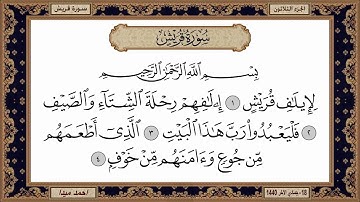 الجزء الثلاثون
سورة قريش
سُورَةُ قُرَيْشٍ
بِسْمِ اللَّهِ الرَّحْمَٰنِ الرَّحِيمِ
لِإِيلَٰفِ قُرَيْشٍ ١ إِۦلَٰفِهِمْ رِحْلَةَ الشِّتَآءِ وَالصَّيْفِ
٢ فَلْيَعْبُدُوا۟ رَبَّ هَٰذَا الْبَيْتِ ٣ الَّذِىٓ أَطْعَمَهُم
مِّن جُوعٍ وَءَامَنَهُم مِّنْ خَوْفٍ ٤
أحمد ميلاد